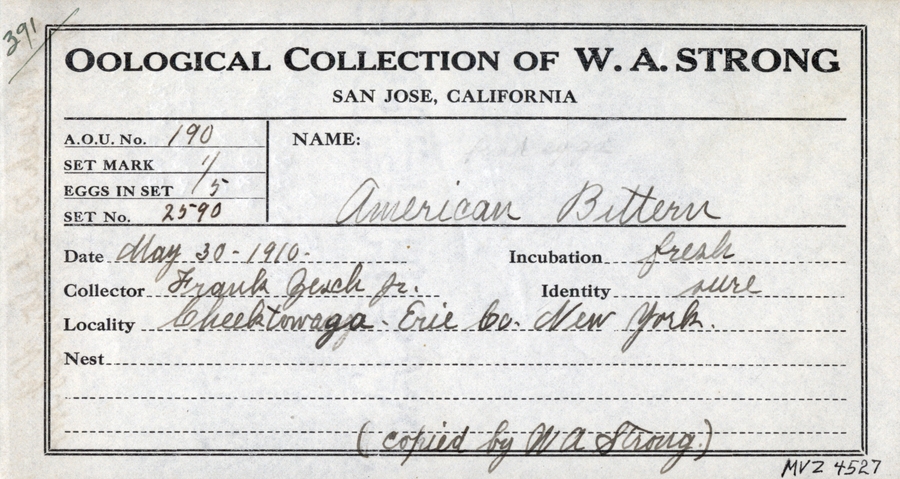 391
OOLOGICAL COLLECTION OF W. A. STRONG
SAN JOSE, CALIFORNIA
A.O.U. No. 190
NAME:
SET MARK 1/
EGGS IN SET 1/5
SET No. 2590
American Bittern
Date May 30-1910- Incubation fresh
Collector Frank Zesch Jr. Identity sure
Locality Cheektowaga - Erie Co. New York.
Nest
(copied by W A Strong)
MVZ 4527